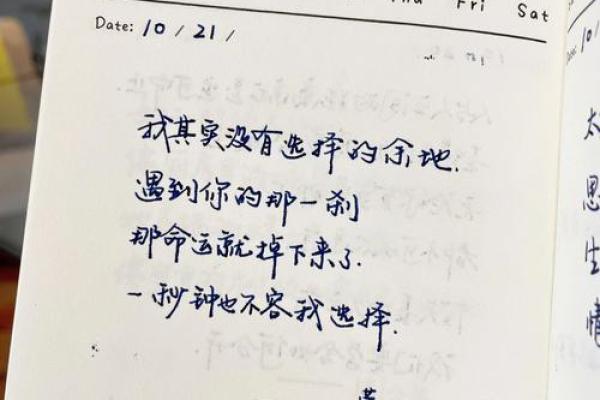 Thu Fri Sat
Date: 10 / 21 /
我其实没有选择的余地.
遇到你的那一刹
那命运就掉下来了.
一秒钟也不容我选择.
太
思
生
情